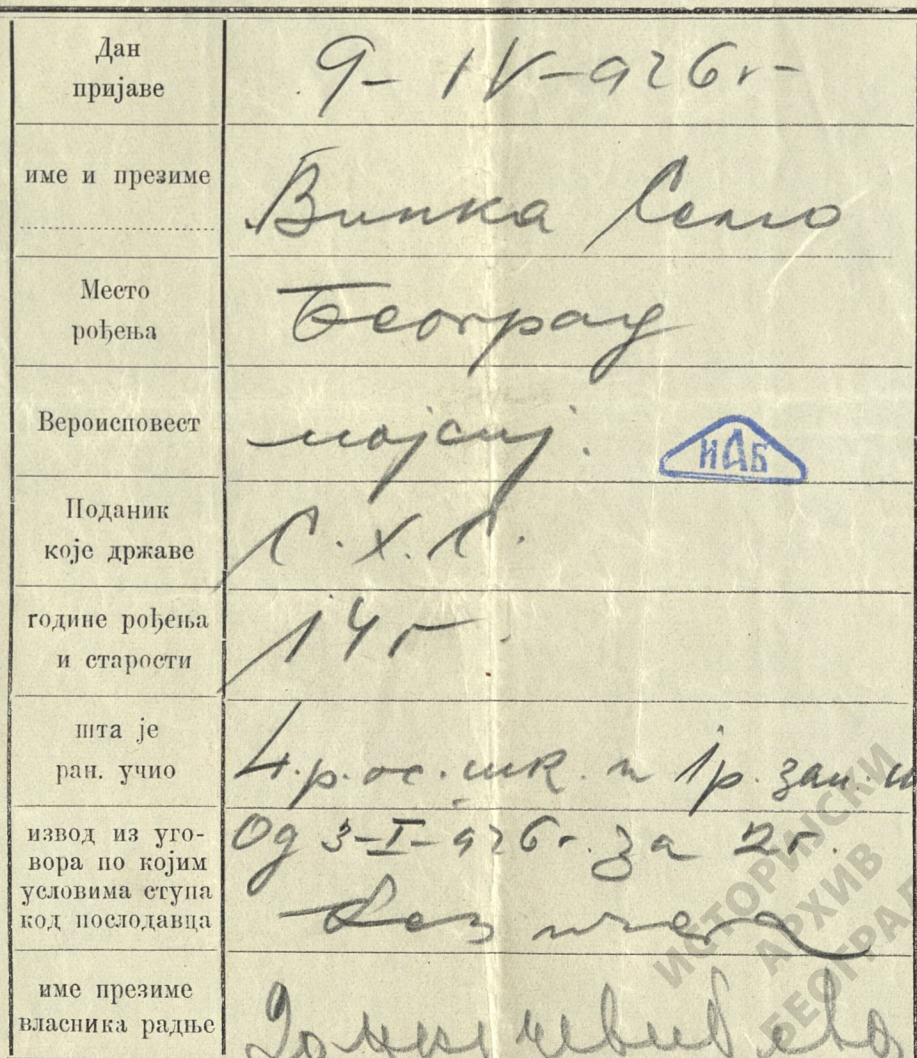 Дан
пријаве
9- IV-926 г-
име и презиме
Винка
Место
рођења
Београд
Вероисповест
мојсиј.
ИАБ
Поданик
које државе
С. Х. С.
године рођења
и старости
14 г.
шта је
ран. учио
4. р. ос. шк. и 1 р. зан. ш
извод из уго-
вора по којим
условима ступа
код послодавца
Од 3-I-926 г. за 2 г.
без
име презиме
власника радње
ИСТОРИЈСКИ
АРХИВ
БЕОГРАД